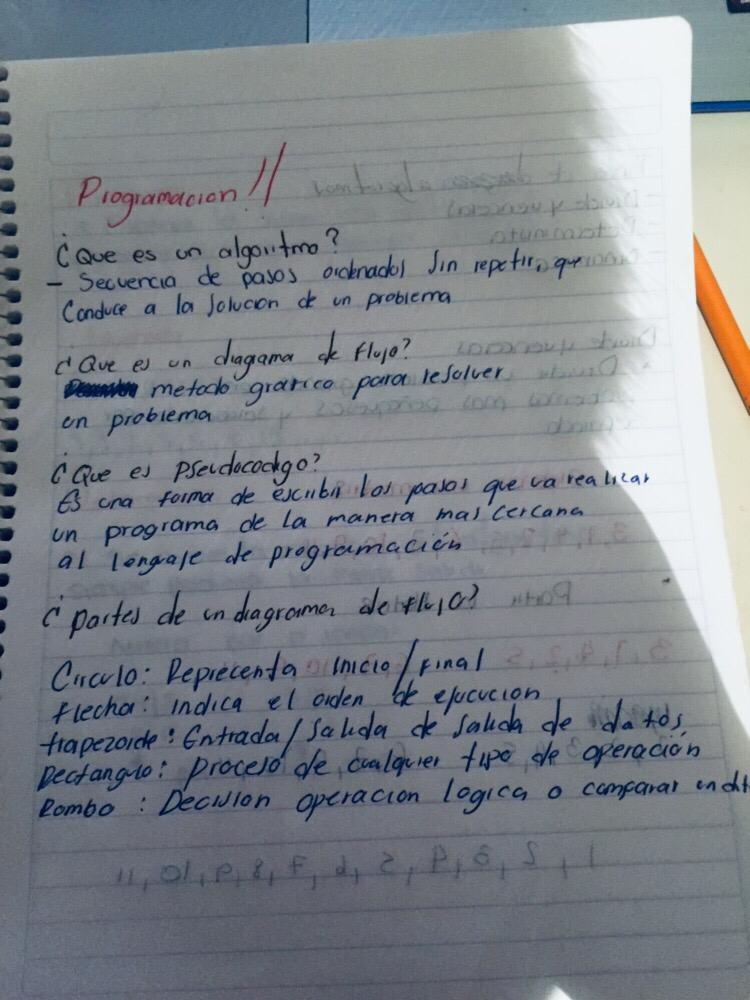 Programacion //
¿Que es un algoritmo?
- Secuencia de pasos ordenados sin repetir, que
Conduce a la solucion de un problema
¿Que es un diagama de flujo?
metodo grafico para resolver
un problema
¿Que es pseudocodigo?
Es una forma de escribir los pasos que va realizar
un programa de la manera mas cercana
al lenguaje de programación
¿partes de un diagrama de flujo?
Circulo: Representa Inicio/Final
flecha: indica el orden de ejecucion
trapezoide: Entrada/salida de salida de datos
Rectangulo: proceso de cualquier tipo de operación
Rombo : Decision operacion logica o comparar
1, 2, 3, 4, 5, 6, 7, 8, 9, 10, 11